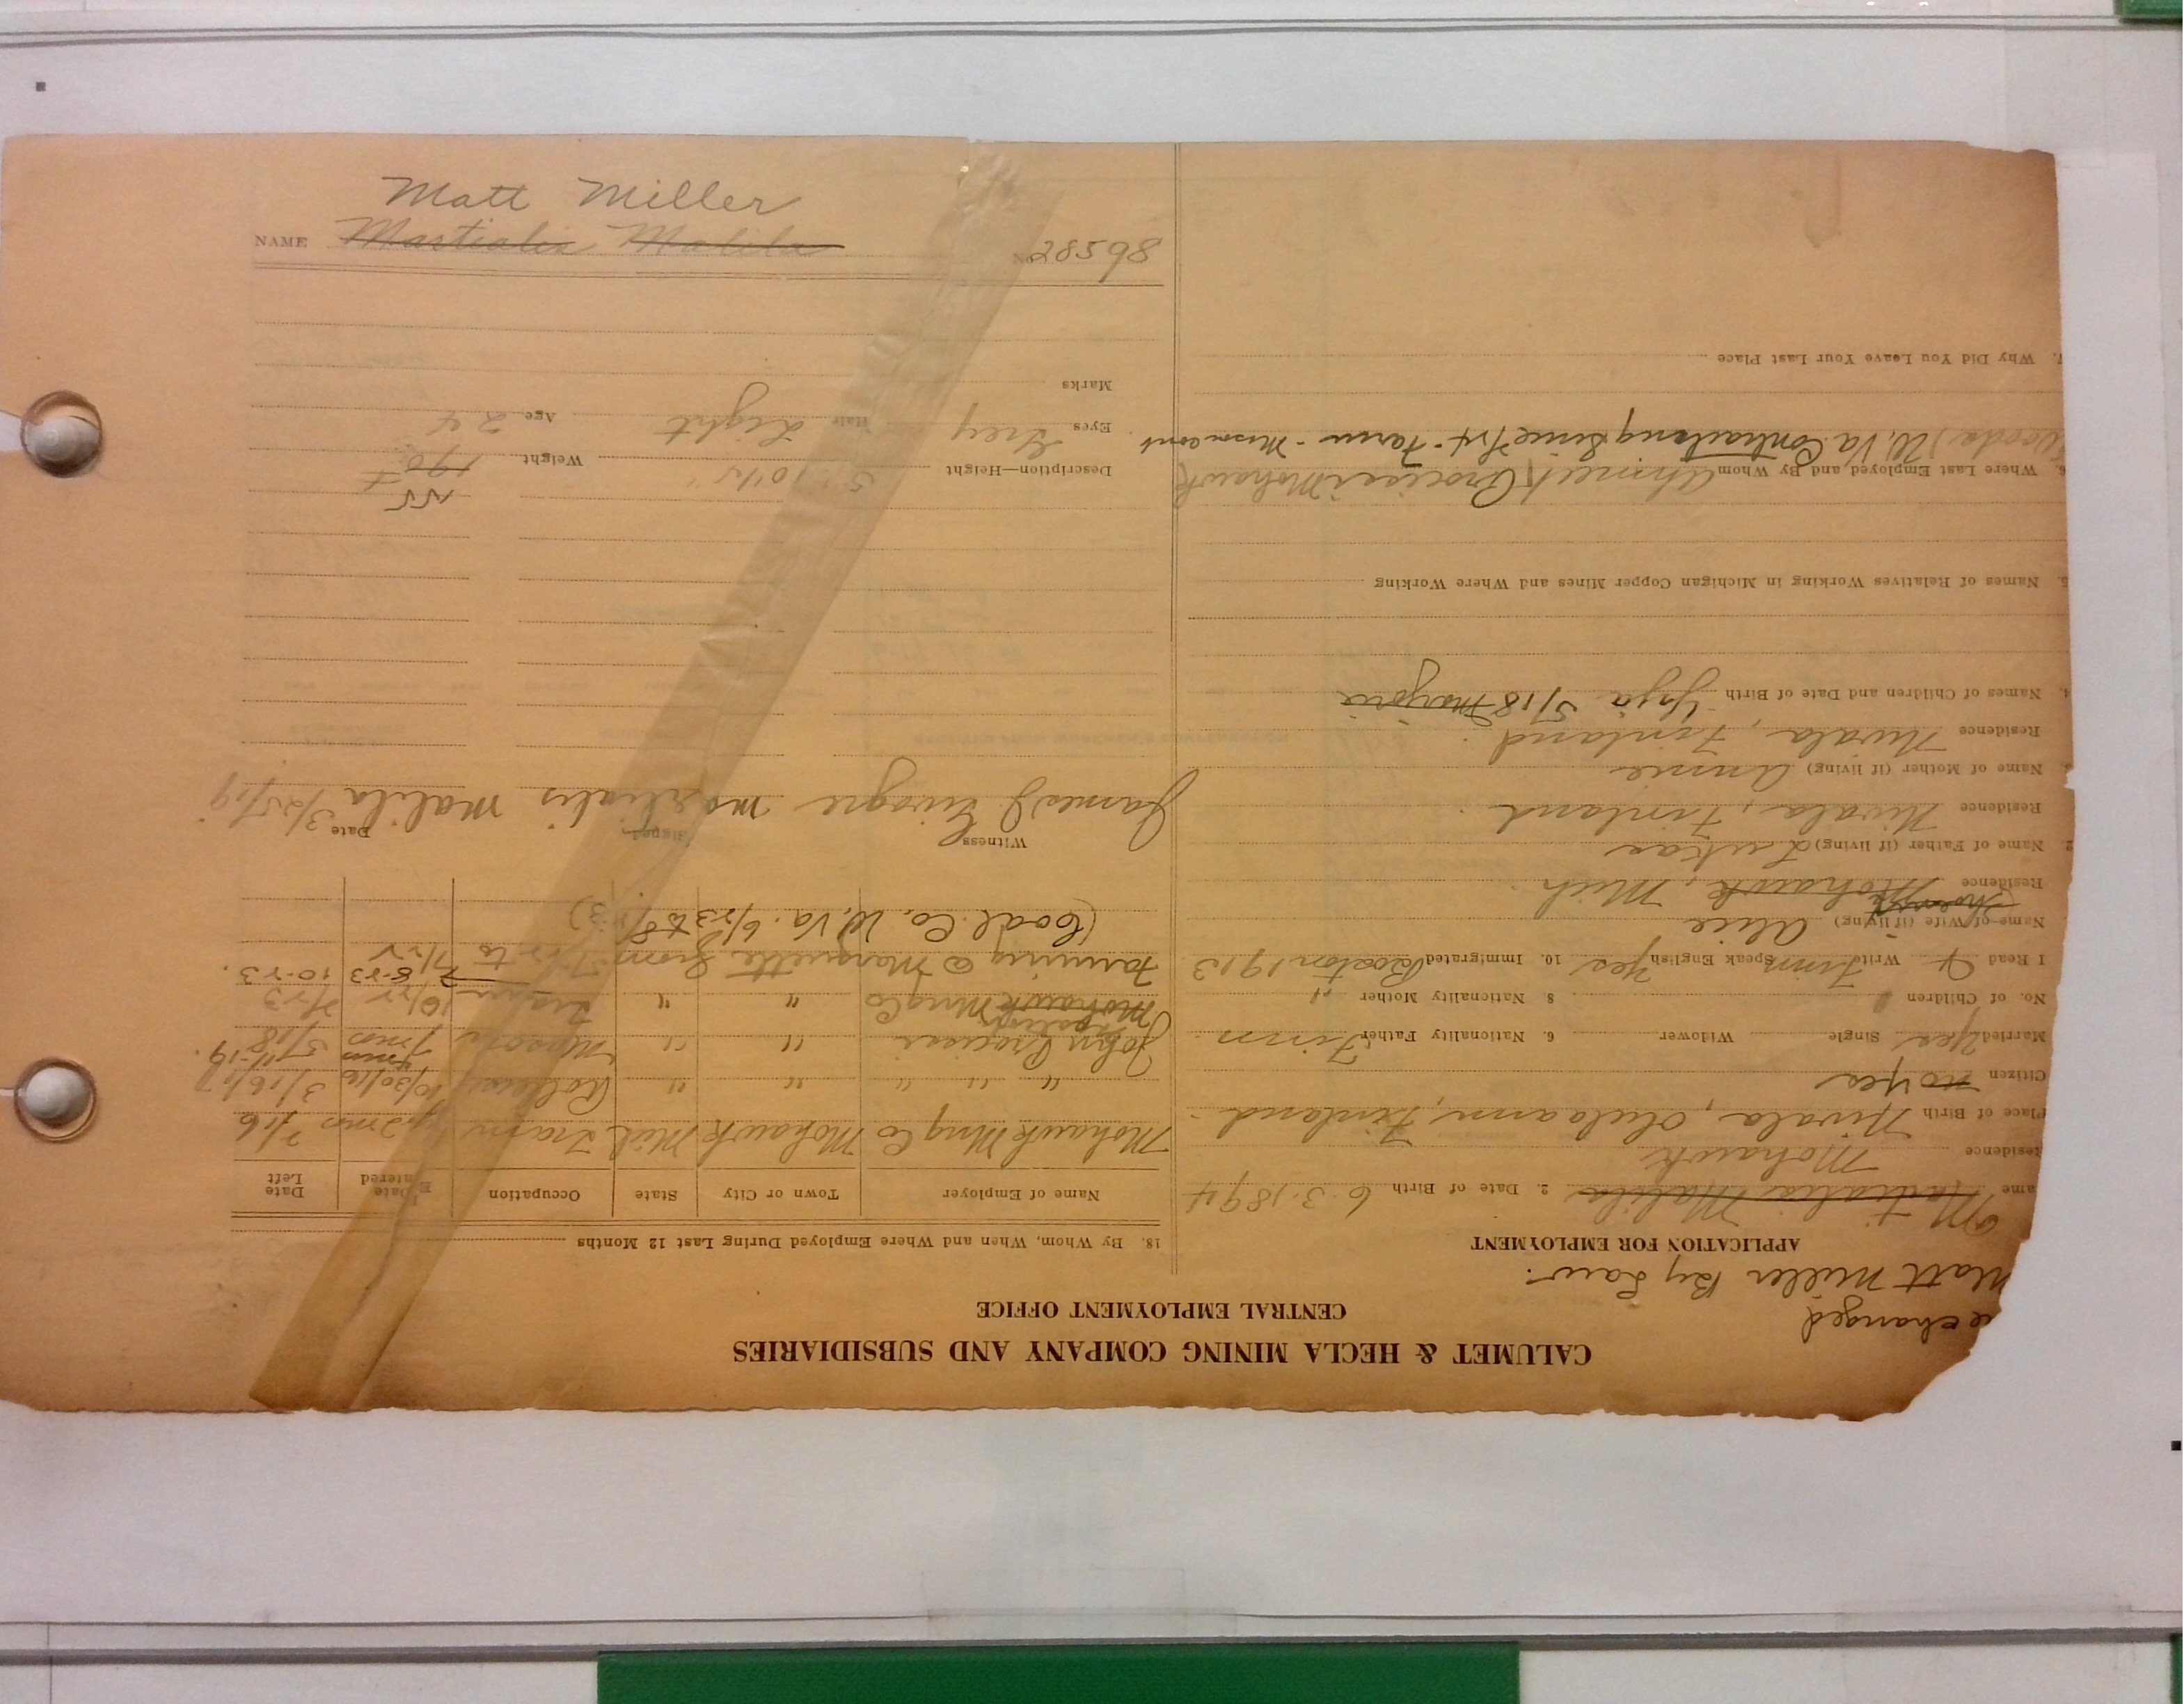 CALUMET & HECLA MINING COMPANY AND SUBSIDIARIES
CENTRAL EMPLOYMENT OFFICE
changed
Matt Miller By Law.
APPLICATION FOR EMPLOYMENT
ame Martialis Malila 2. Date of Birth 6.3.1894
Residence Mohawk
Place of Birth Nivala, Finland
Citizen no Yes
Married Yes Single Widower 6. Nationality Father Finn
No. of Children 8. Nationality Mother "
I Read & Write Finn Speak English Yes 10. Immigrated Boston 1913
Name of Wife (if living) Alice
Residence Mohawk, Mich
2. Name of Father (if living) Lukas
Residence Nivala, Finland.
Name of Mother (if living) Annie
Residence Nivala, Finland.
4. Names of Children and Date of Birth 5/18 Marjorie
5. Names of Relatives Working in Michigan Copper Mines and Where Working
6. Where Last Employed and By Whom Ahmeek Mohawk
W. Va. Contracting Since Farm
7. Why Did You Leave Your Last Place
18. By Whom, When and Where Employed During Last 12 Months
Name of Employer Town or City State Occupation Date Entered Date Left
Mohawk Mng Co Mohawk Mich Tram 2 mos 7/16
" " " " " 10/30/16 3/16/17
John " " 7 mos 5/18
Mohawk Mng Co " " 6/22 7/23
Farming @ Marquette from to 7/22 8-23 10-23.
(Coal Co. W. Va. 6/23 to 8/23)
Witness Signed Date
James J. Martialis Malila 3/25/19
155
Description—Height 5' 10 1/2" Weight 190
Eyes Grey Hair Light Age 24
Marks
Matt Miller
NAME Martialis Malila No. 28598